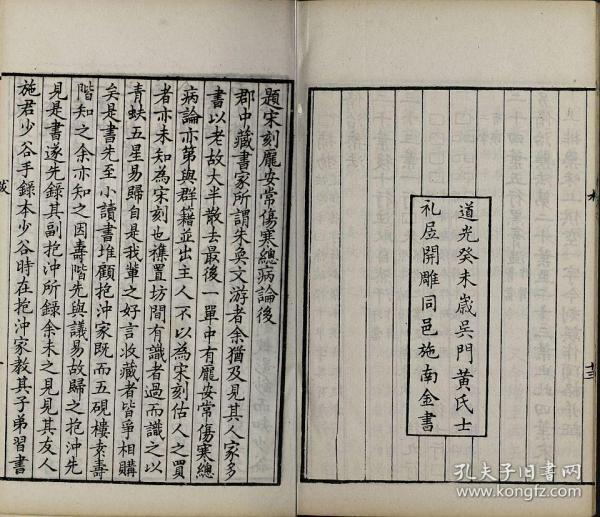 道光癸未歲吳門黄氏士
礼居開雕同邑施南金書
十三
題宋刻龐安常傷寒總病論後
郡中藏書家所謂朱奐文游者余猶及見其人家多
書以老故大半散去最後一單中有龐安常傷寒總
病論亦第與群籍並出主人不以為宋刻估人之買
者亦未知為宋刻也攜置坊間有識者過而識之以
青蚨五星易歸自是我輩之好言收藏者皆爭相購
矣是書先至小讀書堆顧抱沖家既而五硯樓袁壽
階知之余亦知之因壽階先與議易故歸之抱沖先
見是書遂先錄其副抱沖所錄余未之見見其友人
施君少谷手錄本少谷時在抱沖家教其子弟習書
跋
一
孔夫子旧书网
www.kongfz.com